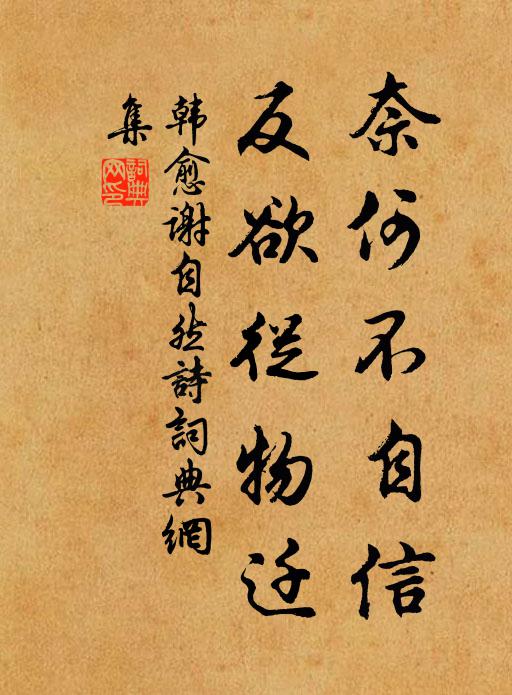 奈何不自信
反欲從物迁
韩愈谢自然詩詞典網
集
詞典
网印